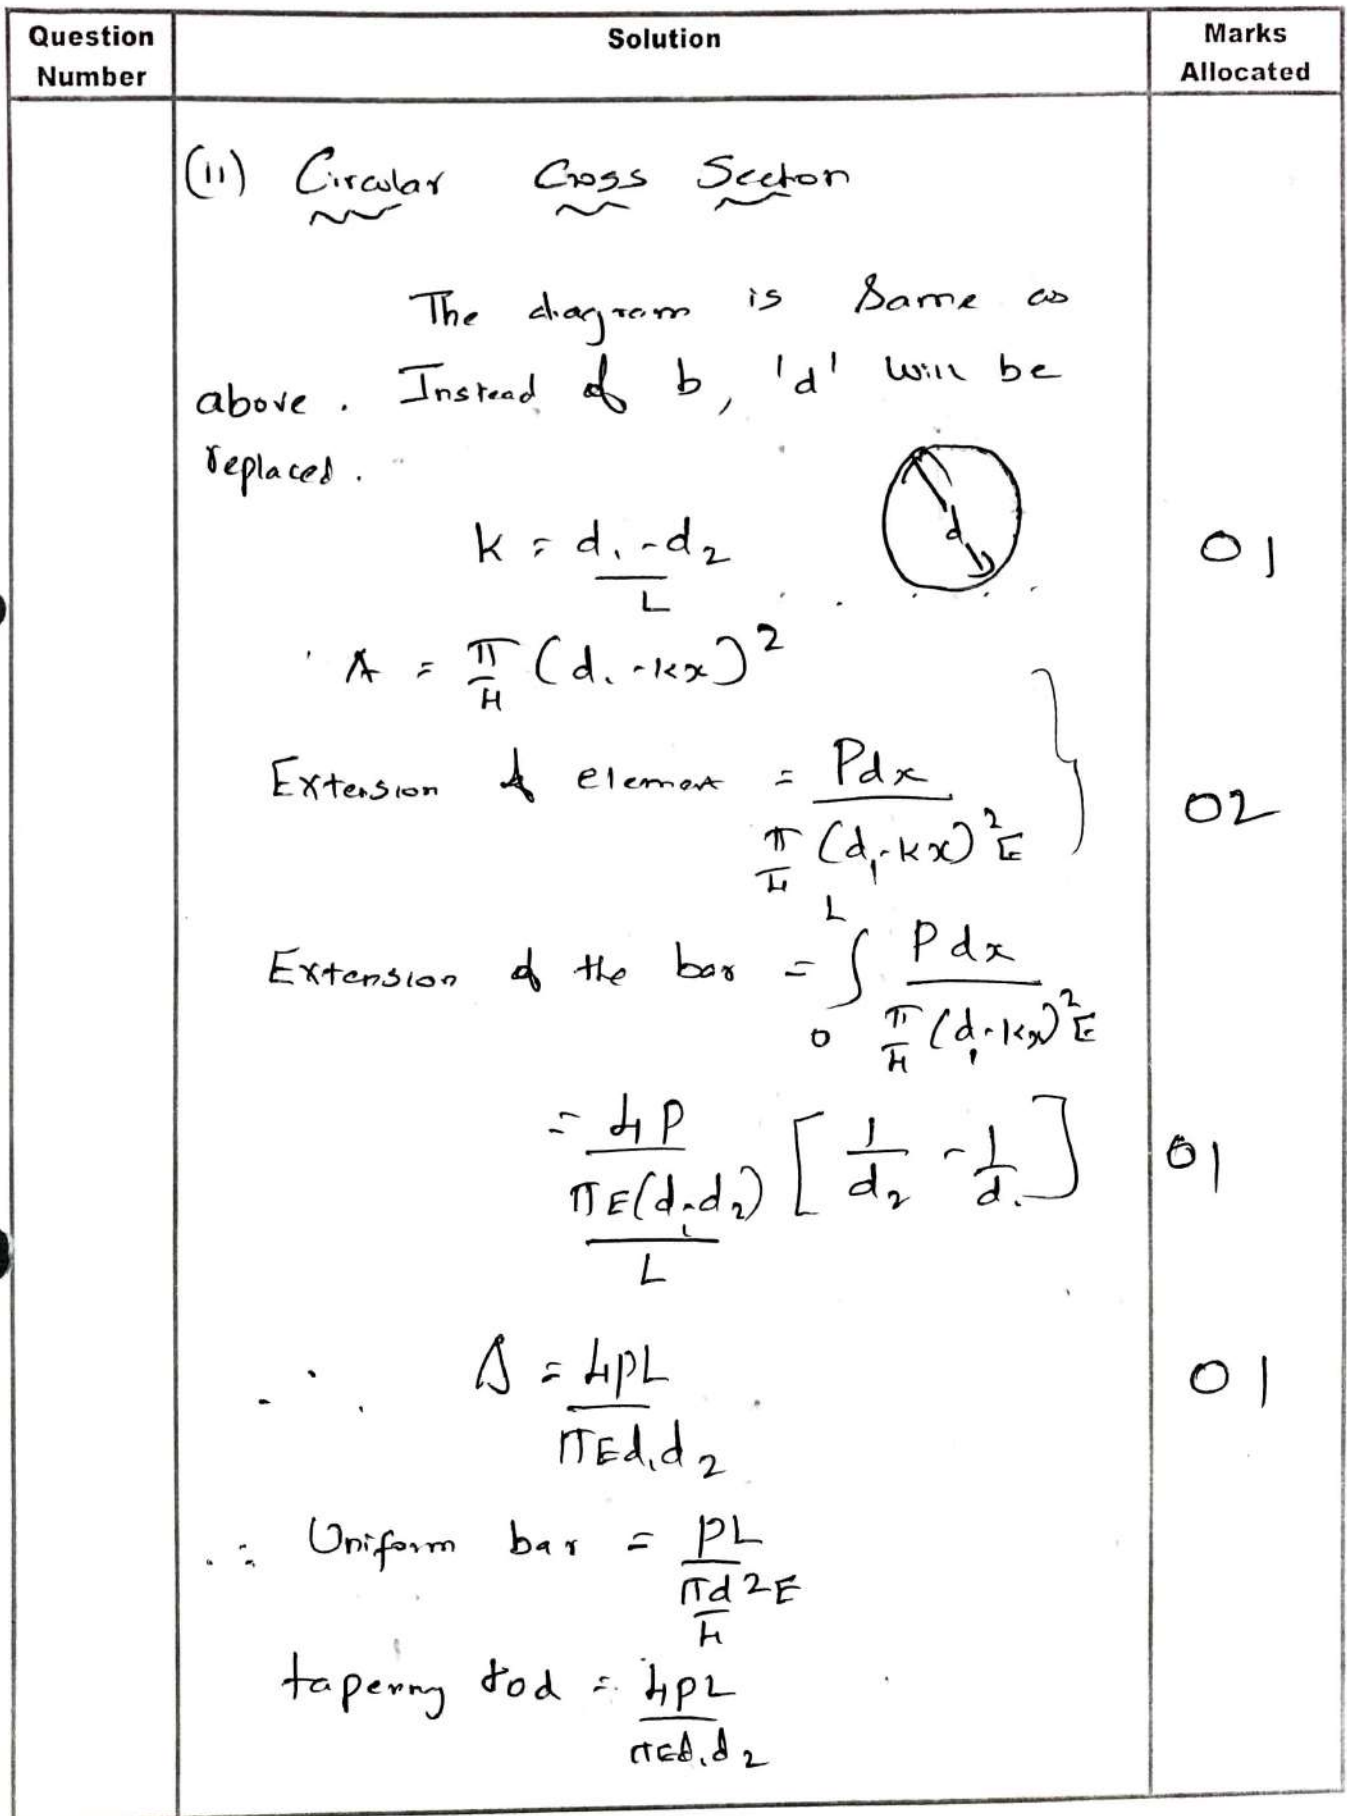 Question Number
Solution
Marks Allocated
(ii) Circular Cross Section
The diagram is Same as
above. Instead of b, 'd' will be
replaced.
d
k = d₁-d₂/L
01
A = π/4 (d₁-kx)²
Extension of element = Pdx / π/4 (d₁-kx)²E
02
Extension of the bar = ∫₀ᴸ Pdx / π/4 (d₁-kx)²E
= 4P / πE(d₁-d₂)/L [1/d₂ - 1/d₁]
01
∴ Δ = 4PL / πEd₁d₂
01
∴ Uniform bar = PL / πd²/4 E
tapering rod = 4PL / πEd₁d₂